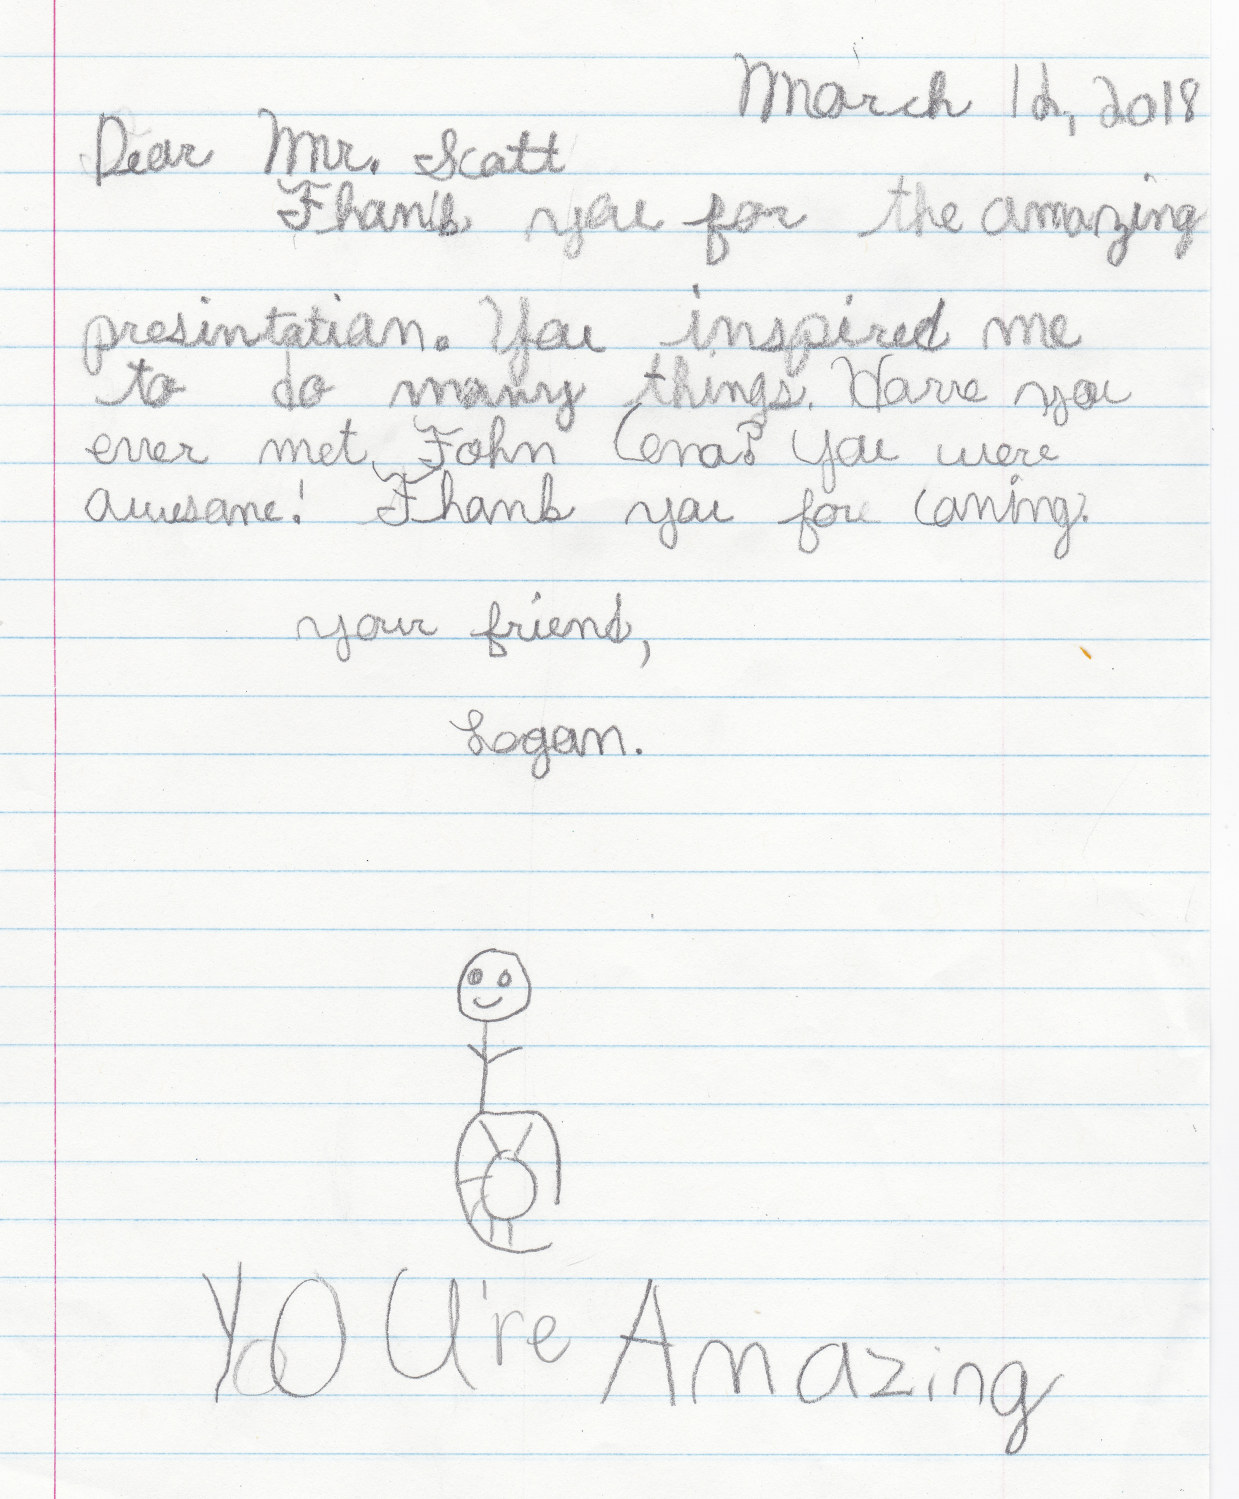 March 12, 2018
Dear Mr. Scott
Thank you for the amazing
presintation. You inspired me
to do many things. Have you
ever met John Cena? You were
awesome! Thank you for coming.
your friend,
Logan.
YOU're Amazing